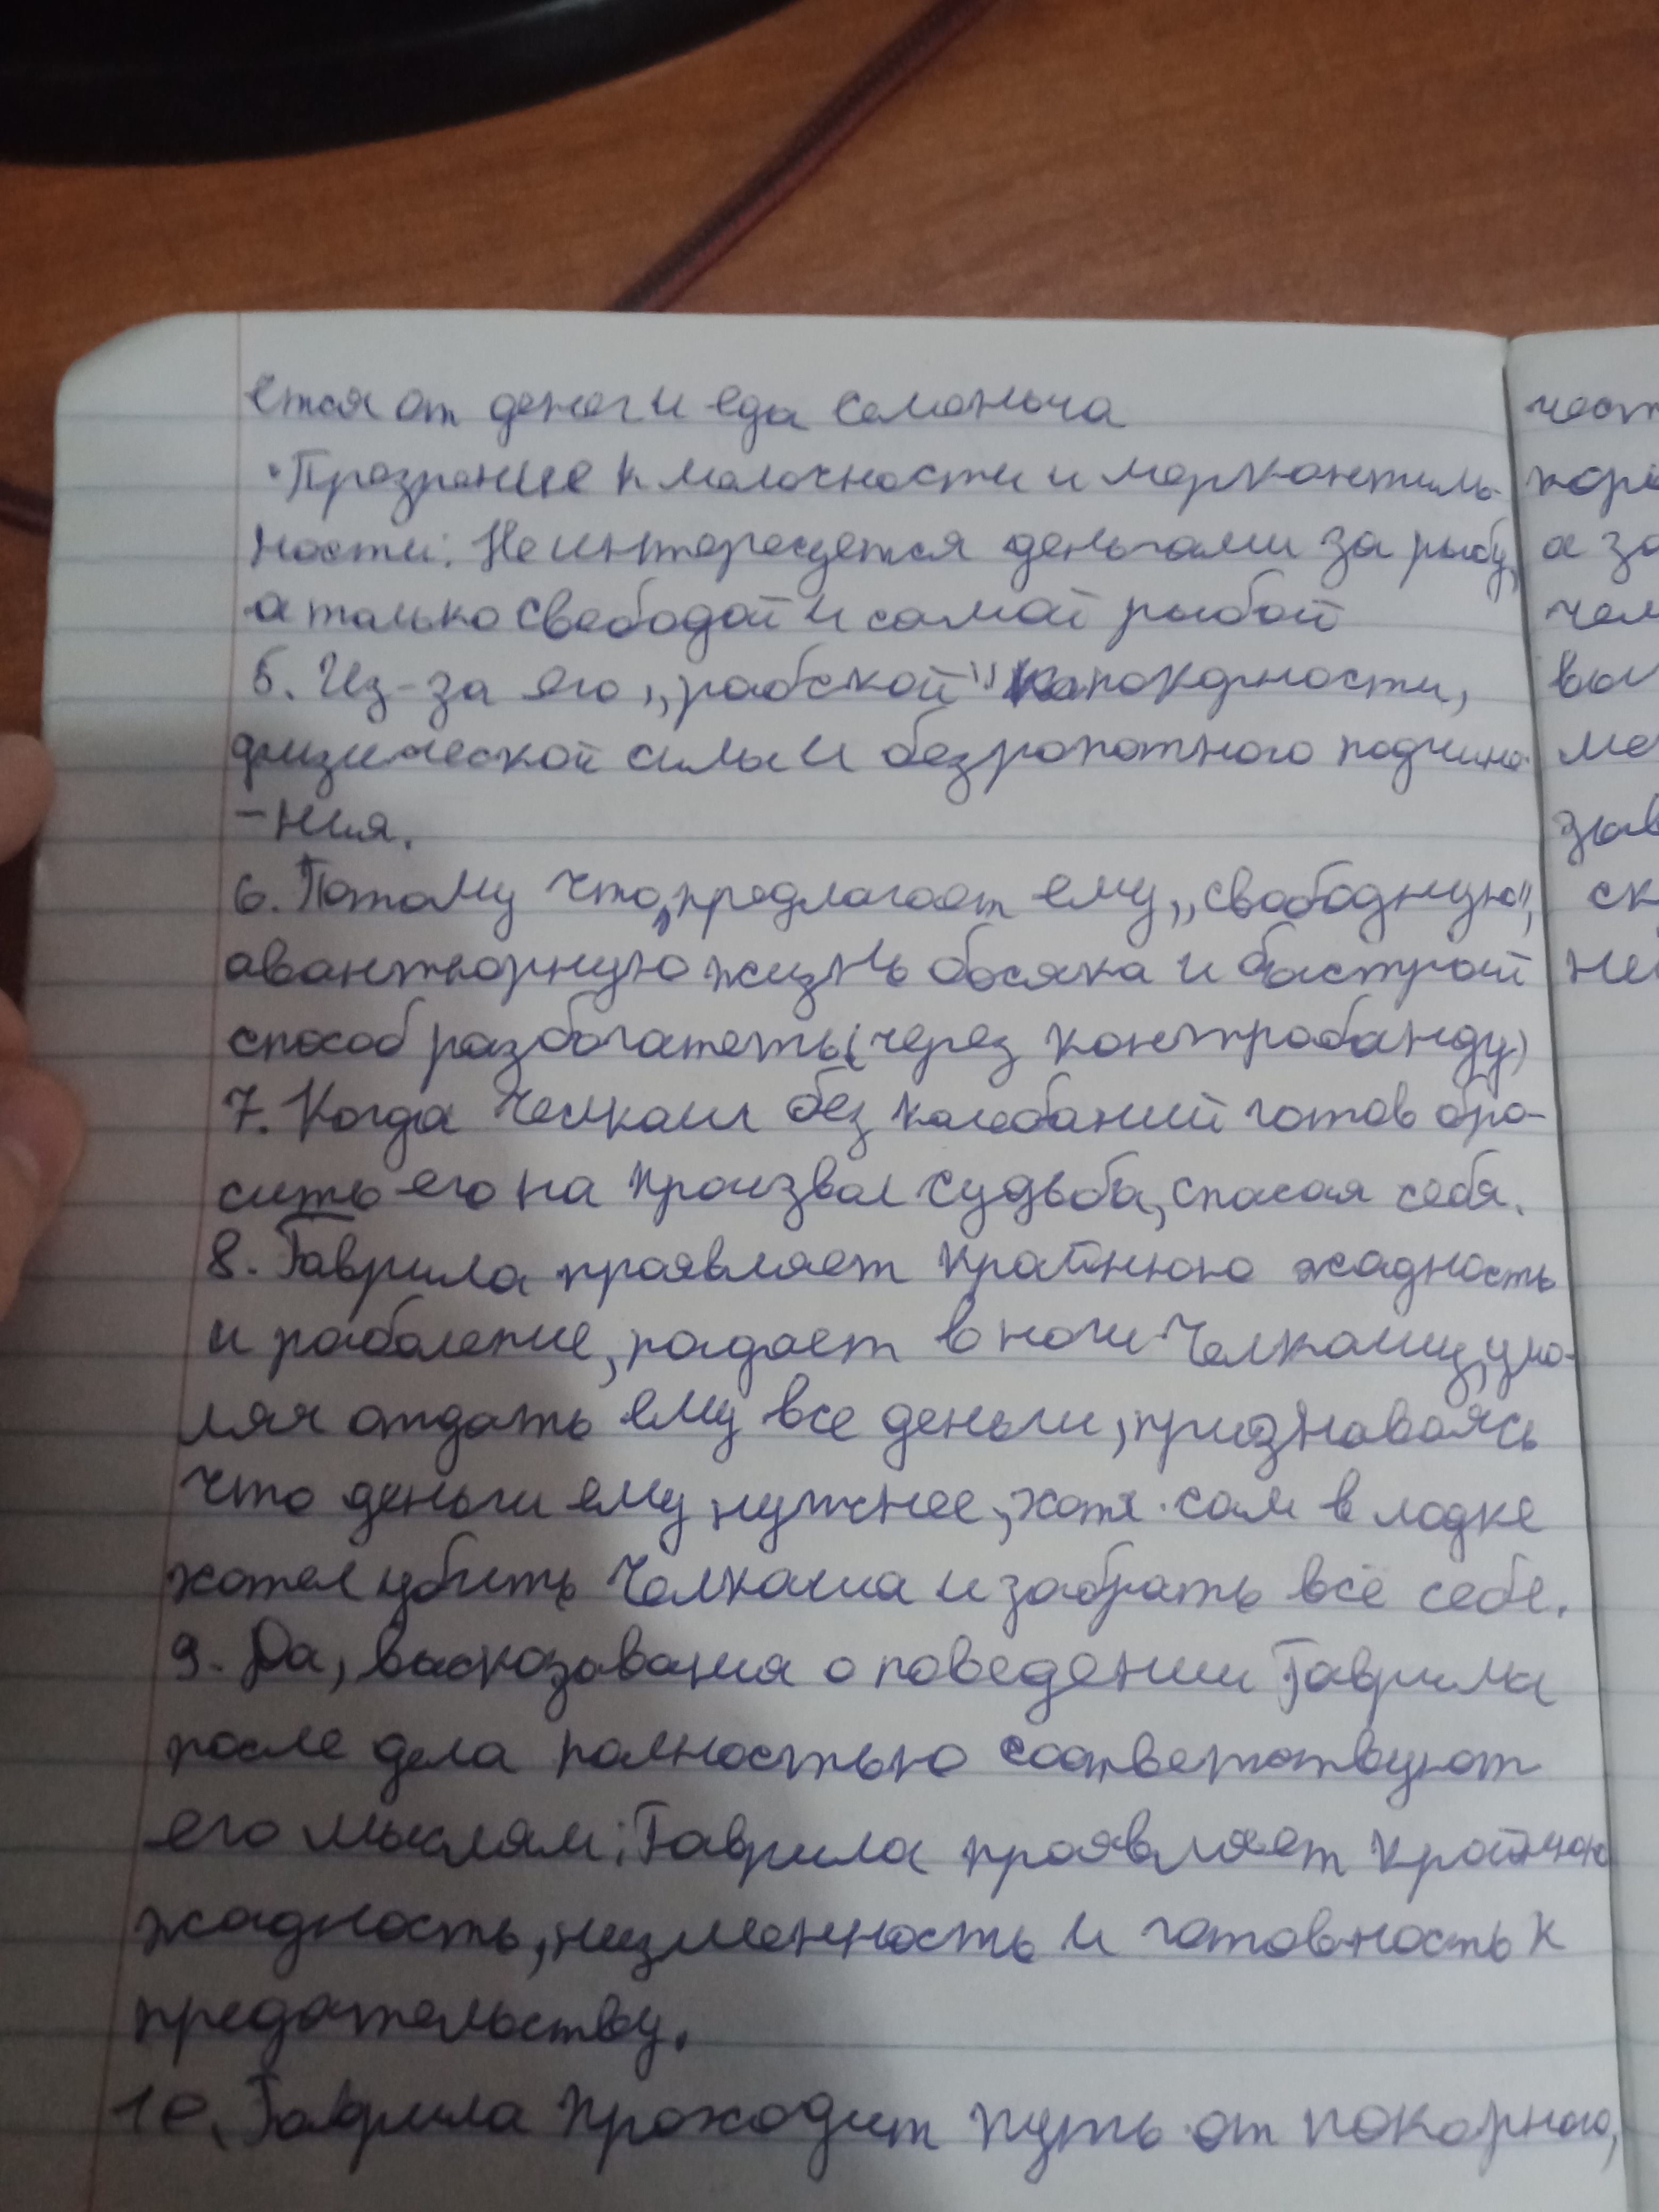 ется от денег и еды Семёныча
• Презрение к мелочности и меркантиль-
ности: Не интересуется деньгами за рыбу,
а только свободой и самой рыбой
5. Из-за его „рабской" покорности,
физической силы и безропотного подчине-
-ния.
6. Потому что, предлагает ему „свободную",
авантюрную жизнь босяка и быстрый
способ разбогатеть (через контрабанду)
7. Когда Челкаш без колебаний готов бро-
сить его на произвол судьба, спасая себя.
8. Гаврила проявляет крайнюю жадность
и раболепие, падает в ноги Челкашу, умо-
ляя отдать ему все деньги, признаваясь
что деньги ему нужнее, хотя сам в лодке
хотел убить Челкаша и забрать всё себе.
9. Да, высказывания о поведении Гаврилы
после дела полностью соответствуют
его мыслям: Гаврила проявляет крайнюю
жадность, низменность и готовность к
предательству.
10. Гаврила проходит путь от покорного,
чест
а за
чем
вы
ме
зыв
ск